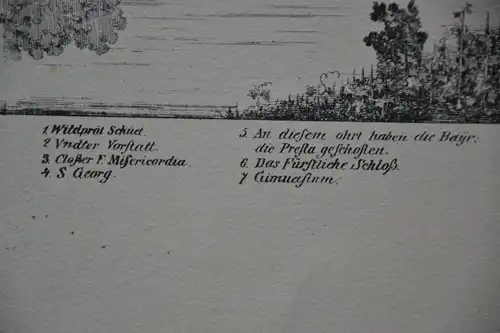 1 Wildprät Schüel.
2 Vndter Vorstatt.
3 Closter F. Misericordia.
4 S Georg.
5. An diesem ohrt haben die Baÿr.
die Presta geschoſſen.
6. Das Fürstliche Schloß.
7 Gimnasium.